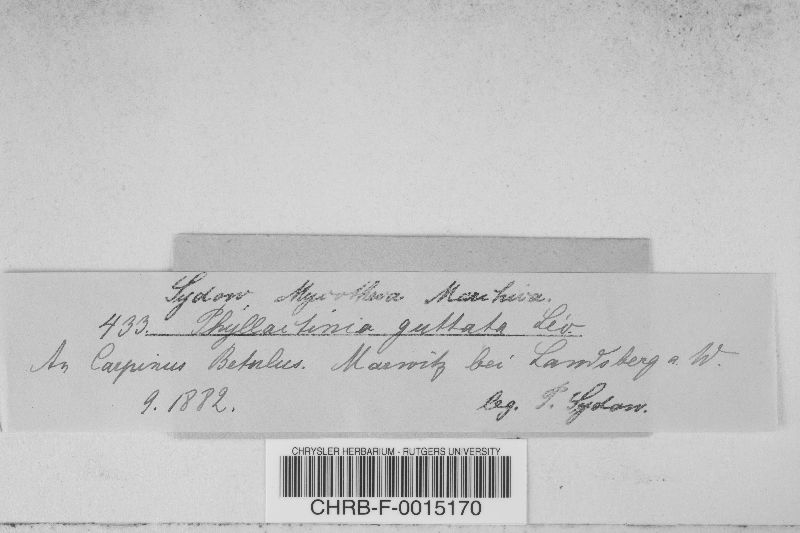 Sydow, Mycotheca Marchica.
433. Phyllactinia guttata Lév.
An Carpinus Betulus. Marwitz bei Landsberg a. W.
9. 1882. leg. P. Sydow.
CHRYSLER HERBARIUM - RUTGERS UNIVERSITY
CHRB-F-0015170